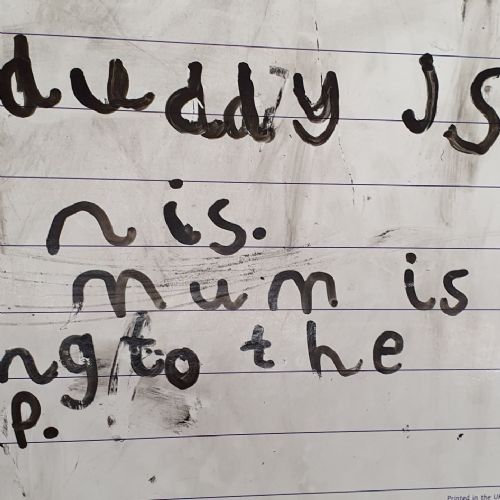 duddy is
n is.
mum is
ng to the
p.
Printed in the U